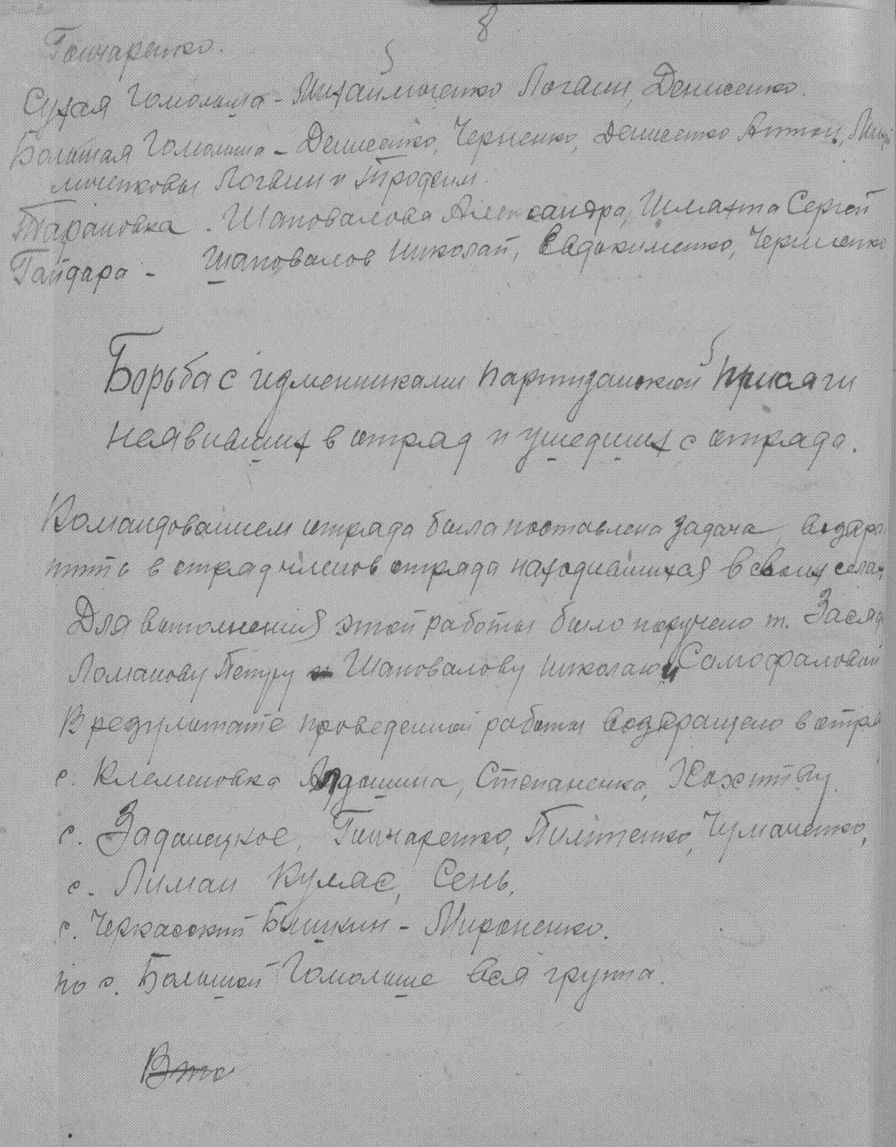 8
Гончаренко.
Сухая Гомольша - Михайличенко Логвин, Денисенко.
Большая Гомольша - Денисенко, Черненко, Денисенко Антон,
личенковы Логвин и Трофим.
Тарановка. Шаповалова Александра, Шляхта Сергей
Гайдара - Шаповалов Николай, Евдокименко, Черненко
Борьба с изменниками партизанской присяги
неявивших в отряд и ушедших с отряда.
Командованием отряда была поставлена задача, возвра
тить в отряд членов отряда находившихся в своих селах
Для выполнения этой работы было поручено т.
Ломанову Петру Шаповалову Николаю и Самофаловой
В результате проведенной работы возвращено в отря
с. Клеменовка Степаненка,
с. Задонецкое, Гончаренко, Пилипенко, Чумаченко,
с. Лиман Куляс, Сень.
с. Черкасский Бишкин - Мироненко.
по с. Большой Гомольше вся группа.
Вто